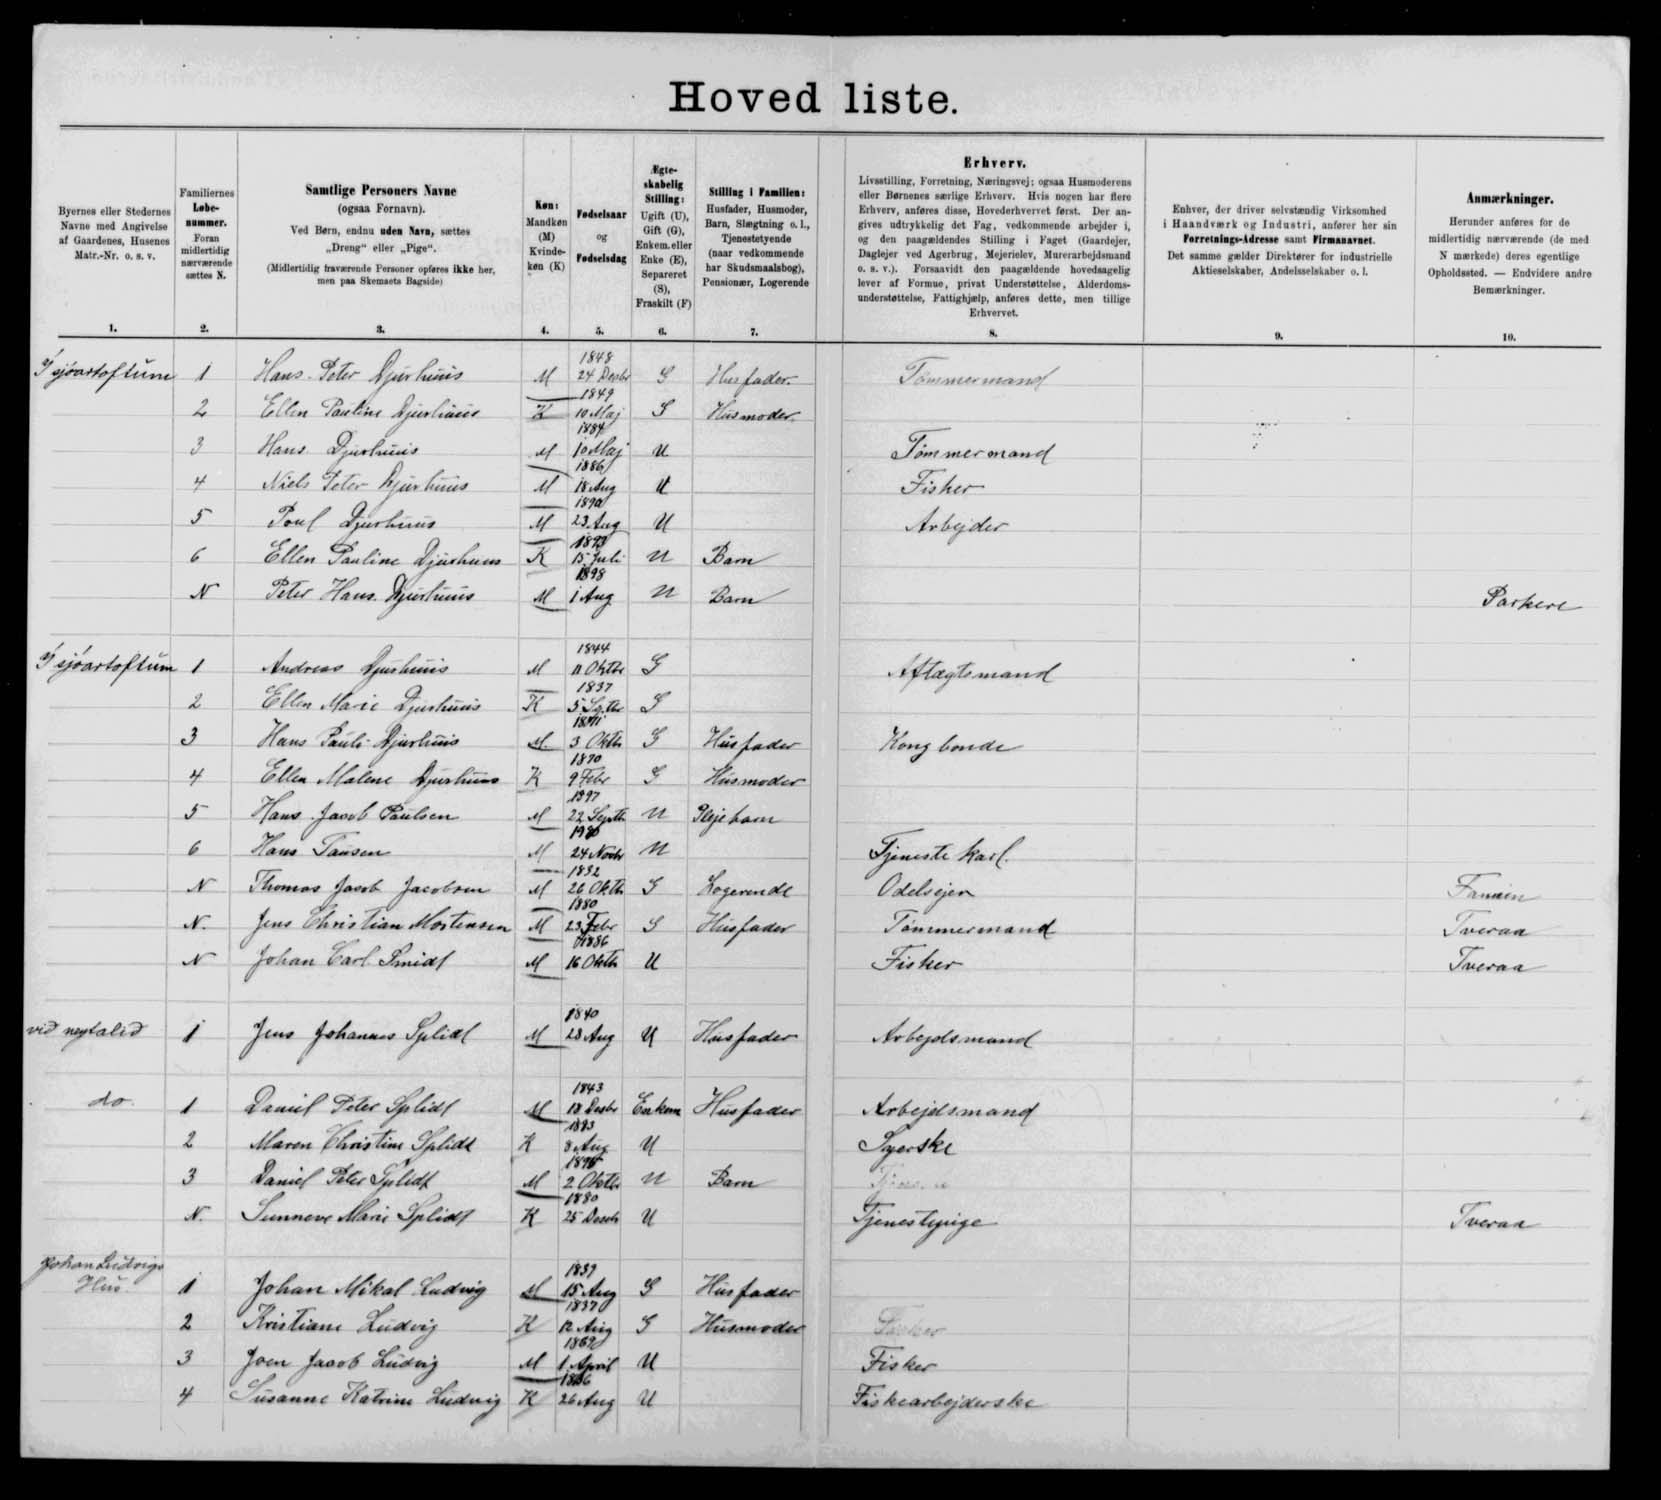 Hoved liste.
Byernes eller Stedernes Navne med Angivelse af Gaardenes, Husenes Matr.-Nr. o. s. v.
Familiernes Løbe-nummer. Foran midlertidig nærværende sættes N.
Samtlige Personers Navne
(ogsaa Fornavn).
Ved Børn, endnu uden Navn, sættes „Dreng" eller „Pige".
(Midlertidig fraværende Personer opføres ikke her, men paa Skemaets Bagside)
Køn: Mandkøn (M) Kvinde-køn (K)
Fødselsaar og Fødselsdag
Ægte-skabelig Stilling: Ugift (U), Gift (G), Enkem. eller Enke (E), Separeret (S), Fraskilt (F)
Stilling i Familien: Husfader, Husmoder, Barn, Slægtning o. l., Tjenestetyende (naar vedkommende har Skudsmaalsbog), Pensionær, Logerende
Erhverv.
Livsstilling, Forretning, Næringsvej; ogsaa Husmoderens eller Børnenes særlige Erhverv. Hvis nogen har flere Erhverv, anføres disse, Hovederhvervet først. Der angives udtrykkelig det Fag, vedkommende arbejder i, og den paagældendes Stilling i Faget (Gaardejer, Daglejer ved Agerbrug, Mejerielev, Murerarbejdsmand o. s. v.). Forsaavidt den paagældende hovedsagelig lever af Formue, privat Understøttelse, Alderdomsunderstøttelse, Fattighjælp, anføres dette, men tillige Erhvervet.
Enhver, der driver selvstændig Virksomhed i Haandværk og Industri, anfører her sin Forretnings-Adresse samt Firmanavnet. Det samme gælder Direktører for industrielle Aktieselskaber, Andelsselskaber o. l.
Anmærkninger.
Herunder anføres for de midlertidig nærværende (de med N mærkede) deres egentlige Opholdssted. — Endvidere andre Bemærkninger.
1. 2. 3. 4. 5. 6. 7. 8. 9. 10.
Í sjóartoftum 1 Hans Peter Djurhuus M 1848 24 Decbr G Husfader. Tømmermand
2 Ellen Pauline Djurhuus K 1849 10 Maj G Husmoder.
3 Hans Djurhuus M 1884 10 Maj U Tømmermand
4 Niels Peter Djurhuus M 1886 18 Aug U Fisker
5 Poul Djurhuus M 1890 23 Aug U Arbejder
6 Ellen Pauline Djurhuus K 1893 15 Juli U Barn
N Peter Hans Djurhuus M 1898 1 Aug U Barn Porkere
Í sjóartoftum 1 Andreas Djurhuus M 1844 11 Oktbr G Aftægtsmand
2 Ellen Marie Djurhuus K 1837 5 Septbr G
3 Hans Pauli Djurhuus M. 3 Oktbr G Husfader Kongbonde
4 Ellen Malene Djurhuus K 1870 9 Febr G Husmoder
5 Hans Jacob Paulsen M 1897 22 Septbr U Plejebarn
6 Hans Tausen M 24 Novbr U Tjenestekarl.
N Thomas Jacob Jacobsen M 1832 26 Oktbr G Logerende Odelsejer Famien
N. Jens Christian Mortensen M 1880 23 Febr G Husfader Tømmermand Tveraa
N Johan Carl Smidt M 1886 16 Oktbr U Fisker Tveraa
við neytalið 1 Jens Johannes Splidt M 1840 28 Aug U Husfader Arbejdsmand
do. 1 Daniel Peter Splidt M 1843 18 Decbr Enkem Husfader Arbejdsmand
2 Maren Christine Splidt K 8 Aug U Syerske
3 Daniel Peter Splidt M 2 Oktbr U Barn
N. Sunneve Marie Splidt K 1880 25 Decbr U Tjenestepige Tveraa
Johan Ludvigs
Hus. 1 Johan Mikal Ludvig M 1839 15 Aug G Husfader
2 Kristiane Ludvig K 1837 12 Aug G Husmoder Fisker
3 Joen Jacob Ludvig M 1869 1 April U Fisker
4 Susanne Katrine Ludvig K 26 Aug U Fiskearbejderske